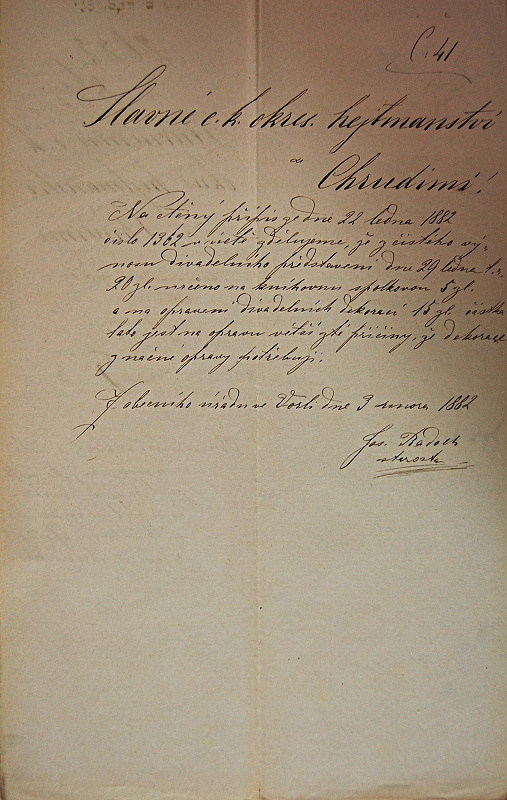 Č. 41
Slavné c. k. okres. hejtmanství
v
Chrudimi!
Na ctěný přípis ze dne 22 ledna 1882
číslo 1302 v úctě sdělujeme, že z čistého vý-
nosu divadelního představení dne 29 ledna t. r.
20 zl. určeno na knihovnu spolkovou 5 zl.
a na opravení divadelních dekorací 15 zl. částka
tato jest na opravu větší z té příčiny, že dekorace
značné opravy potřebují.
Z obecního úřadu ve Vorli dne 3 února 1882
Jos. Radoch
starosta